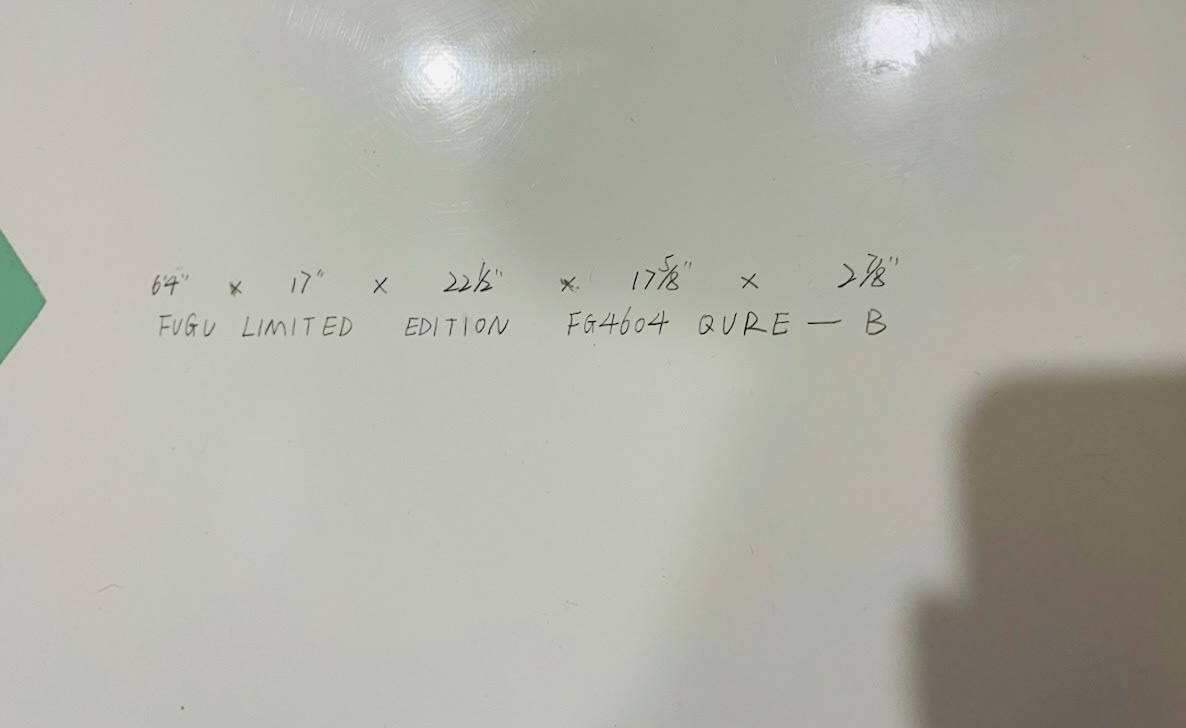 6'4" x 17" x 22 1/2" x 17 5/8" x 2 7/8"
FUGU LIMITED EDITION FG4604 QURE — B